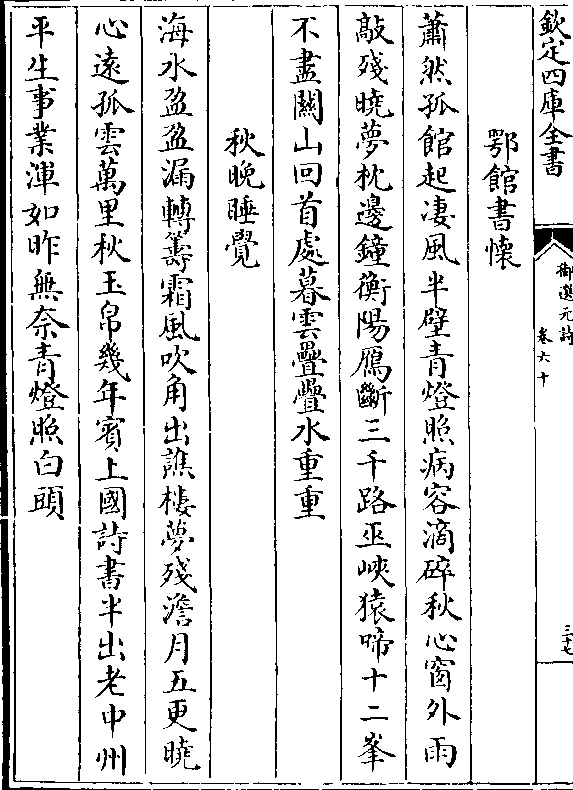 欽定四庫全書
御選元詩
卷六十
三十七
鄂館書懷
蕭然孤館起凄風半壁青燈照病容滴碎秋心窗外雨
敲殘曉夢枕邊鐘衡陽鴈斷三千路巫峽猿啼十二峯
不盡關山回首處暮雲疊疊水重重
秋晚睡覺
海水盈盈漏轉籌霜風吹角出譙樓夢殘澹月五更曉
心遠孤雲萬里秋玉帛幾年賓上國詩書半出老中州
平生事業渾如昨無奈青燈照白頭